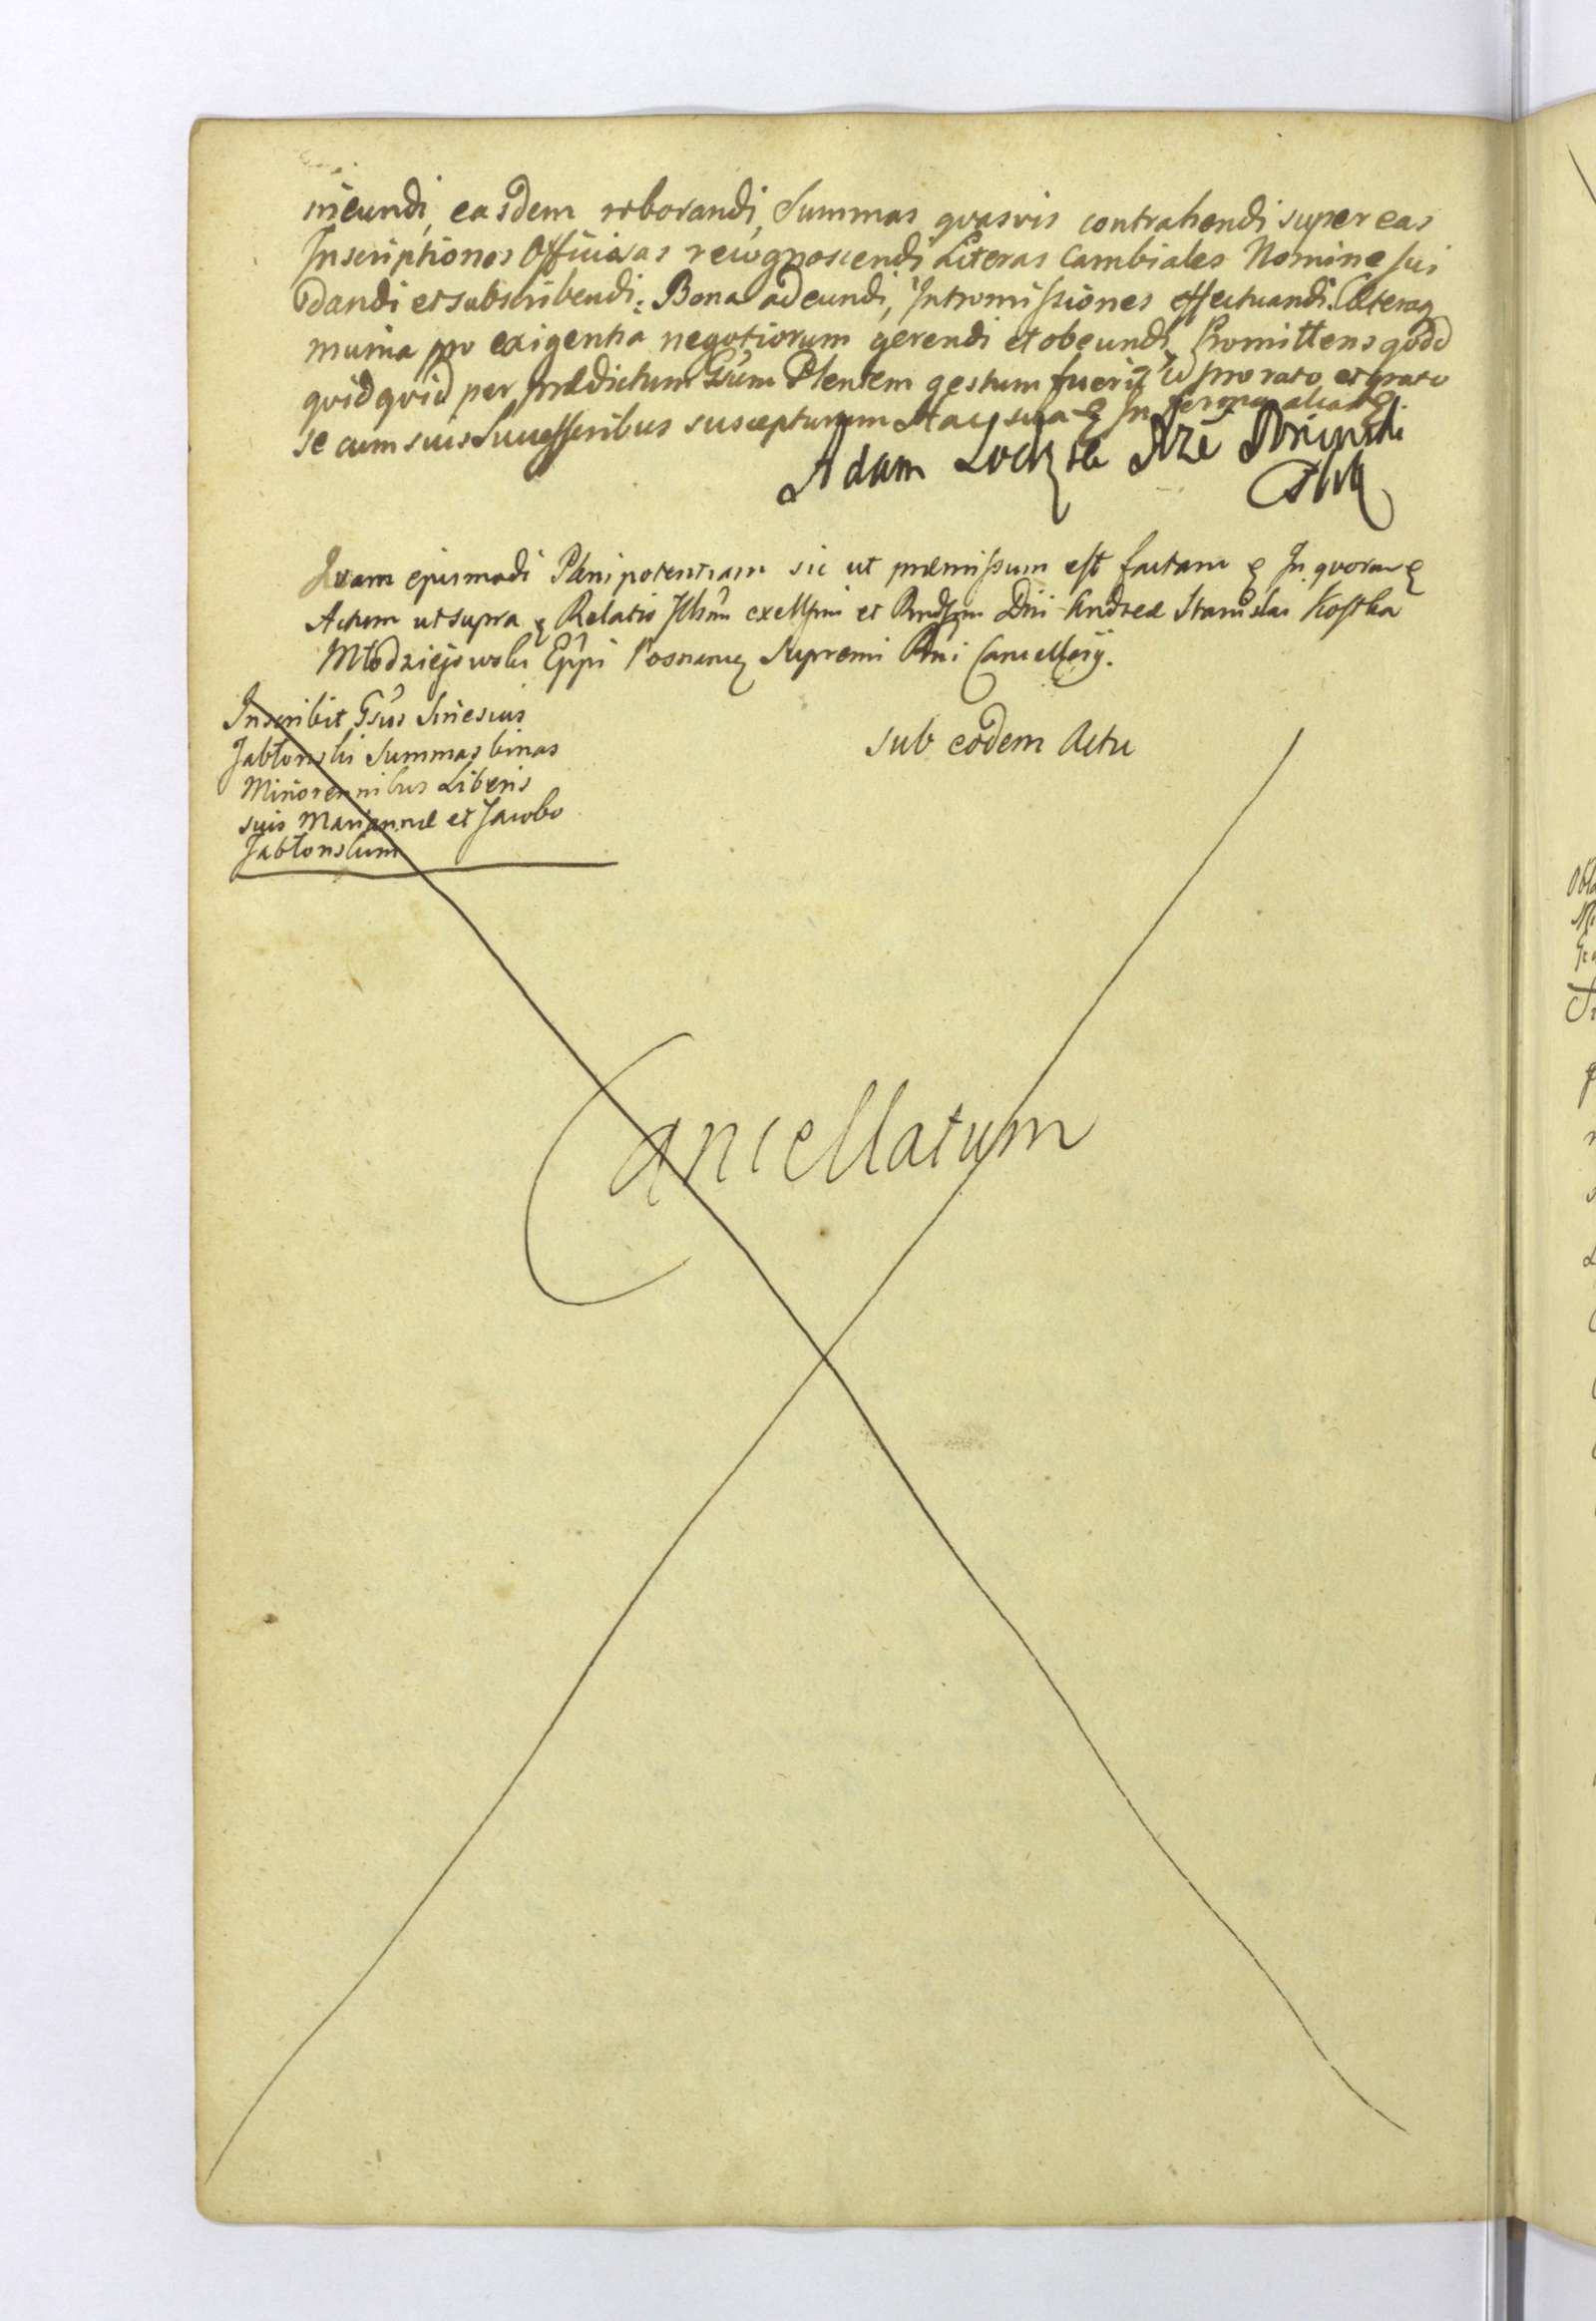 ineundi, easdem roborandi, Summas qvasvis contrahendi super eas
Inscriptiones Officiosas recognoscendi Literas Cambiales Nomine sui
dandi et subscribendi. Bona adeundi, Intromissiones effectuandi. Cæteraq
munia pro exigentia negotiorum gerendi et obeundi, Promittens qvod
qvidqvid per prædictum Gsum Plentem gestum fuerit id pro rato et grato
se cum suis Successoribus suscepturum In forma
Adam
Qvam ejusmodi Plenipotentiam sic ut præmissum est factam In qvorum
Actum ut supra Relatio Illsmi exellsmi et Rndssmi Dni Andreæ Stanislai Kostka
Młodziejowski Eppi Posnaniens Supremi Rni Cancellarij.
Inscribit Gsus
Jabłonski Summas binas
Minorennibus Liberis
suis Mariannæ et Jacobo
Jabłonskim
sub eodem Actu
Cancellatum